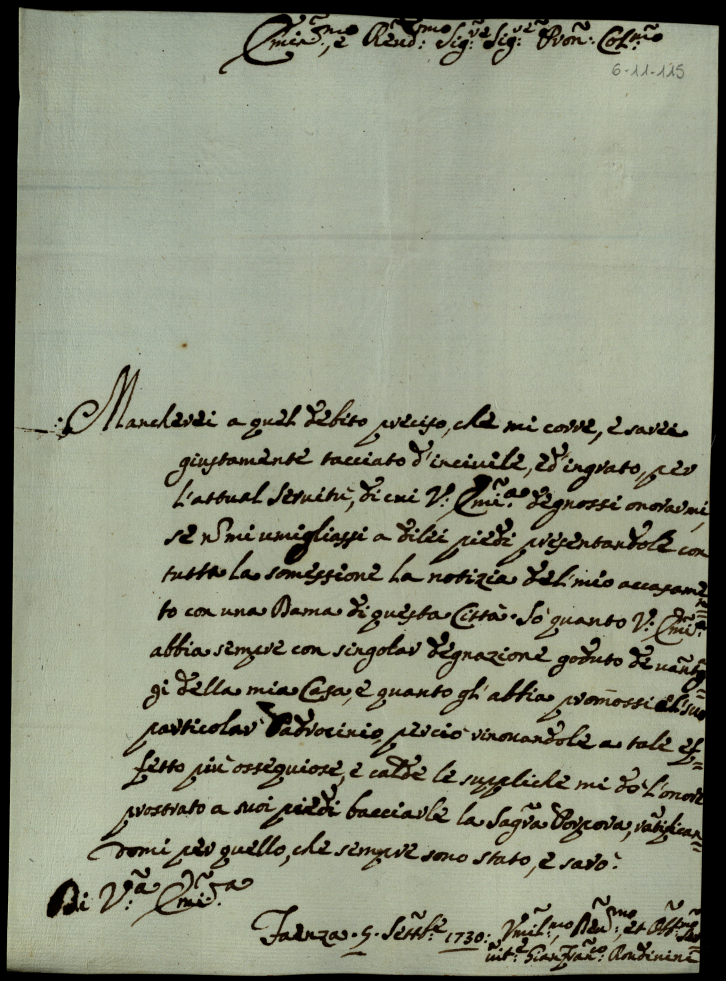 Emin.mo, e Rend:mo Sig.re Sig.re Pron: Col.mo
6-11-115
Mancherei a quel debito preciso, che mi corre, e sarei
giustamente tacciato d'incivile, ed ingrato, per
l'attual servitù, di cui V: Emi.a degnossi onorarmi,
se nõ mi umigliassi a dilei piedi presentandole con
tutta la somessione la notizia del mio accasame
to con una Dama di questa Città. Sò quanto V: Emi.a
abbia sempre con singolar degnazione goduto de vantag
gi della mia Casa, e quanto gl'abbia promossi el suo
particolar Padrocinio, perciò rinovandole a tale ef=
fetto più ossequiose, e calde le suppliche mi dò l'onore
prostrato a suoi piedi bacciarle la Sagra Porpora, ratifican=
domi per quello, che sempre sono stato, e sarò:
Di V.ra Emi.a
Faenza. 5. Settbe 1730:
Umil.mo, Reu:mo, et Obb.mo Ser=
uit.e Gianfran.co Rondinini